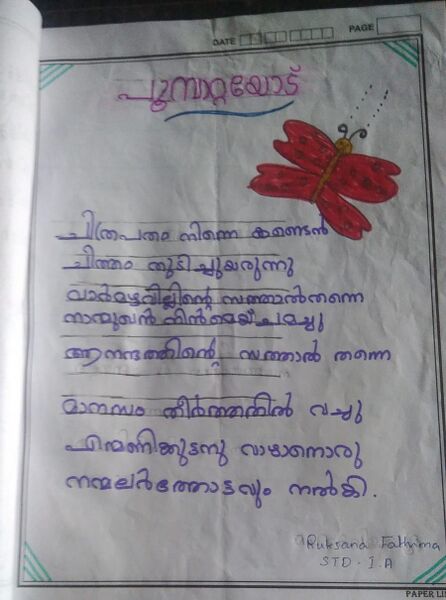 DATE
PAGE
പൂമ്പാറ്റയോട്
ചിത്രപതംഗ നിന്നെ കണ്ടെൻ
ചിത്തം തുടിച്ചുയരുന്നു
വാർമഴവില്ലിന്റെ സത്താൽതന്നെ
നാന്മുഖൻ നിൻമെയ് ചമച്ചു
ആനന്ദത്തിന്റെ സത്താൽ തന്നെ
മാനസം തീർത്തതിൽ വച്ചു
എന്മണിക്കുടനു വാഴാനൊരു
നന്മലർത്തോട്ടവും നൽകി.
Ruksana Fathima
STD - I.A
PAPER LI